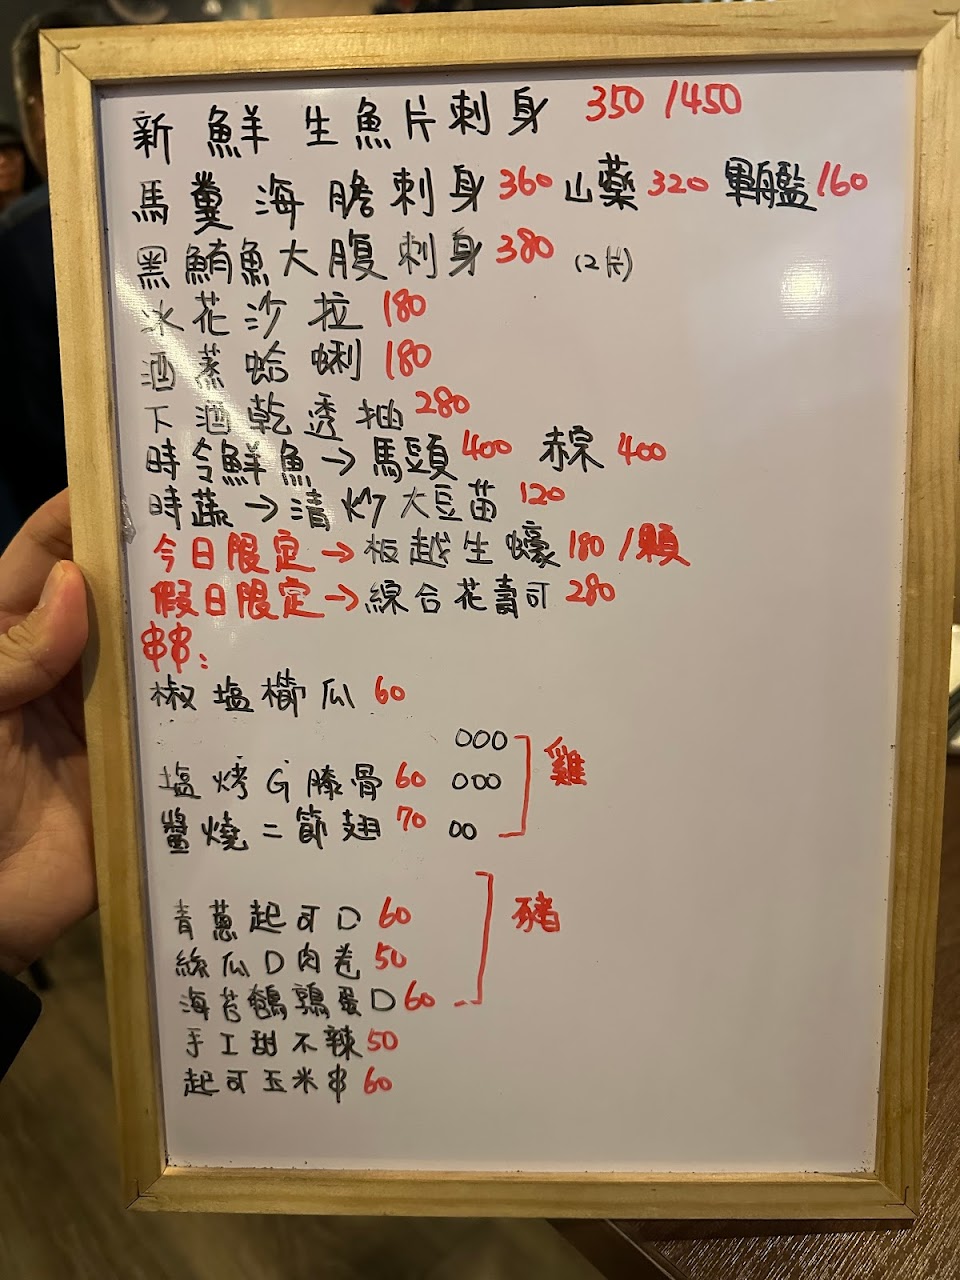 新鮮生魚片刺身 350/450
馬糞海膽刺身 360 山藥 320 軍艦 160
黑鮪魚大腹刺身 380 (2片)
冰花沙拉 180
酒蒸蛤蜊 180
下酒乾透抽 280
時令鮮魚→馬頭 400 赤宗 400
時蔬→清炒大豆苗 120
今日限定→板越生蠔 180/顆
假日限定→綜合花壽司 280
串串:
椒塩櫛瓜 60
塩烤G膝骨 60 ooo ooo
醬燒二節翅 70 oo
雞
青蔥起司D 60
絲瓜D肉卷 50
海苔鵪鶉蛋D 60
豬
手工甜不辣 50
起司玉米串 60